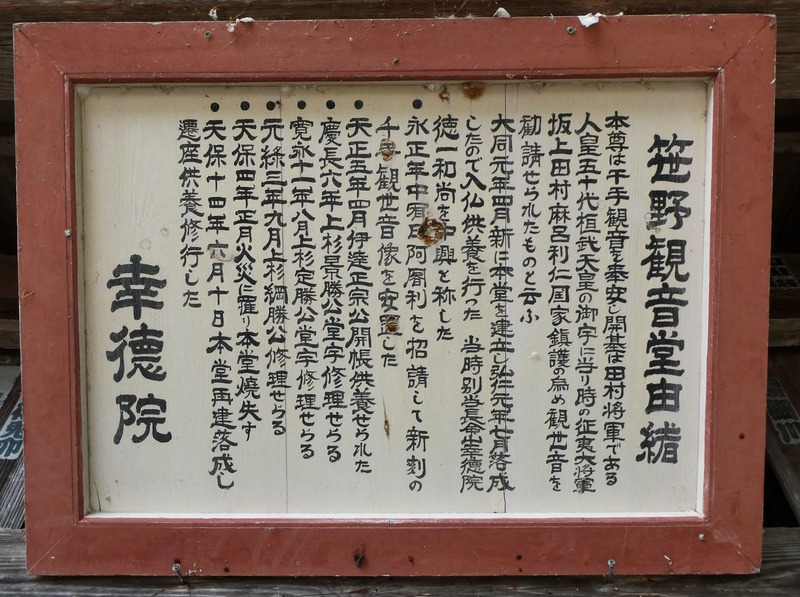 笹野観音堂由緒
本尊は千手観音を奉安し開基は田村将軍である
人皇五十代桓武天皇の御宇に当り時の征夷大将軍
坂上田村麻呂利仁国家鎮護の為め観世音を
勧請せられたものと云ふ
大同元年四月新に本堂を建立し弘仁元年七月落成
したので入仏供養を行った 当時別当長命山幸徳院
徳一和尚を中興と称した
●永正年中宥日阿闍利を招請して新刻の
千手観世音像を安置した
●天正五年四月伊達正宗公開帳供養せられた
●慶長六年上杉景勝公堂宇修理せらる
●寛永十一年八月上杉定勝公堂宇修理せらる
●元禄三年九月上杉綱勝公修理せらる
●天保四年正月火災に罹り本堂焼失す
●天保十四年六月十日本堂再建落成し
遷座供養修行した
幸徳院